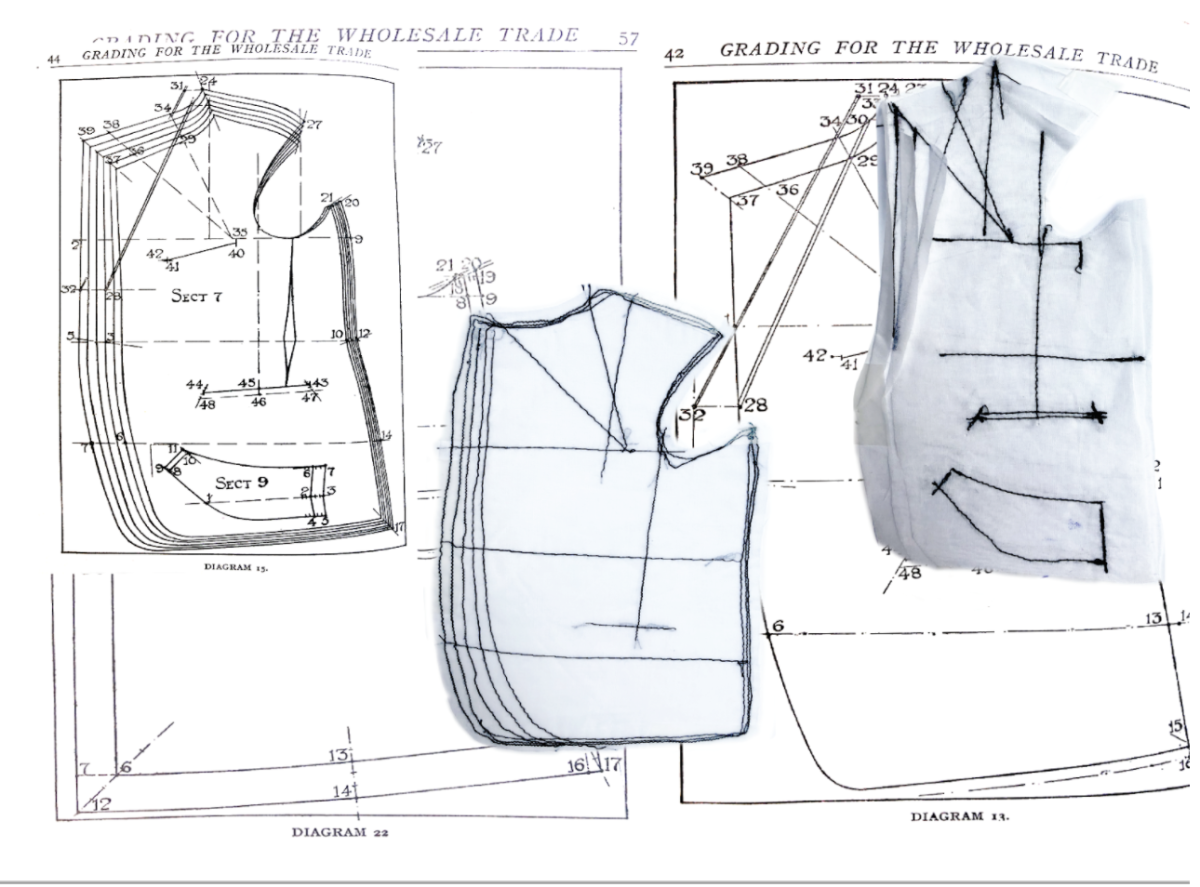 GRADING FOR THE WHOLESALE TRADE 57
44 GRADING FOR THE WHOLESALE TRADE
42 GRADING FOR THE WHOLESALE TRADE
31 24
34
39 38 36 29 27
37
21 20
2 35 9
42 41 40
32 28
SECT 7
5 4 10 12
44 45 43
48 46 47
7 6 14
11
9 8 10 6 7
SECT 9
1 2 3
4 5
17
DIAGRAM 15.
37 27
21 20 19
18
8 9
7 6 13 16 17
12 14
DIAGRAM 22
31 24 27
33
34 30
39 38 29
37 36
1
42 41
32 28
2
1
48 46
6 13 14
15
16
DIAGRAM 13.